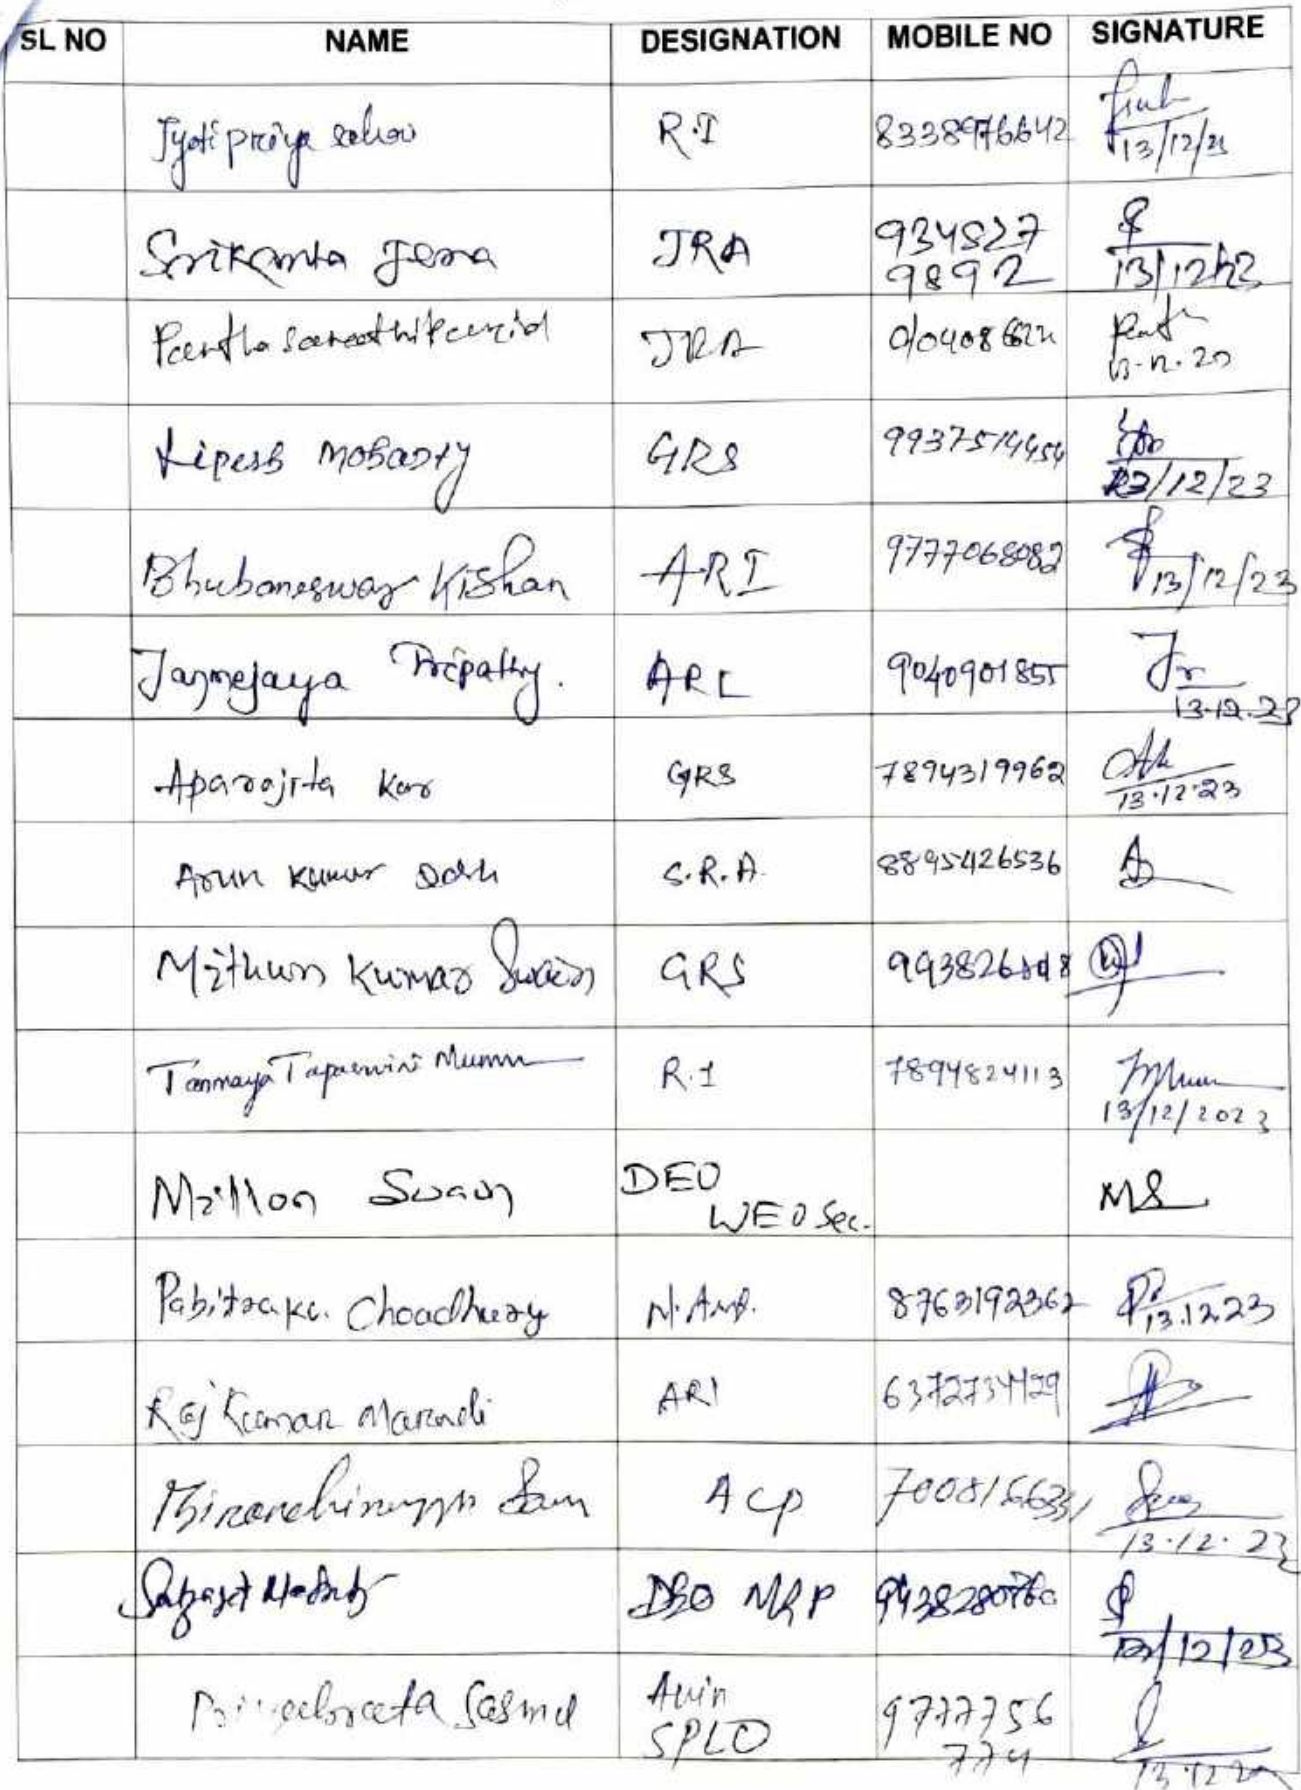 SL NO NAME DESIGNATION MOBILE NO SIGNATURE
Jyoti priya sahoo R.I 8338976642
13/12/23
Srikanta Jena JRA 934827
9892 13/12/23
JRA
GRS 9937514454
13/12/23
Bhubaneswar Kishan ARI 9777068082
13/12/23
Janmejaya Tripathy. ARI 9040901855
13.12.23
Aparajita Kar GRS 7894319962
13.12.23
Arun Kumar S.R.A. 8895426536
Mithun Kumar Swain GRS
Tanmaya Tapaswini Murmu R.I 7894824113
13/12/2023
Millon Swain DEO
WEO Sec. MS
Pabitra kr. Choudhury 8763192362
13.12.23
Raj Kumar Marandi ARI
ACP
13.12.23
MRP
13/12/23
Sasmal
SPLO 9777756
774